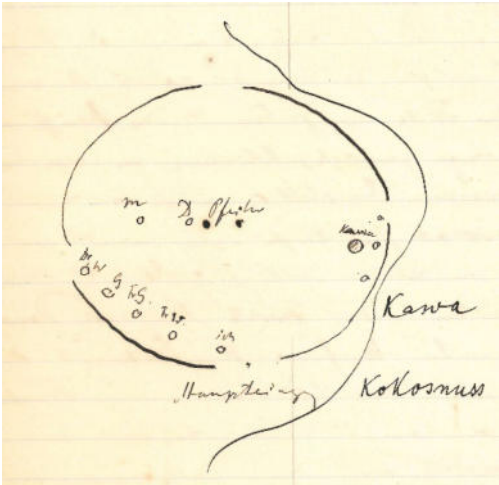 m D Pfeiler
Kawa
G
Fr. G.
ich
Kawa
Haupteingang
Kokosnuss